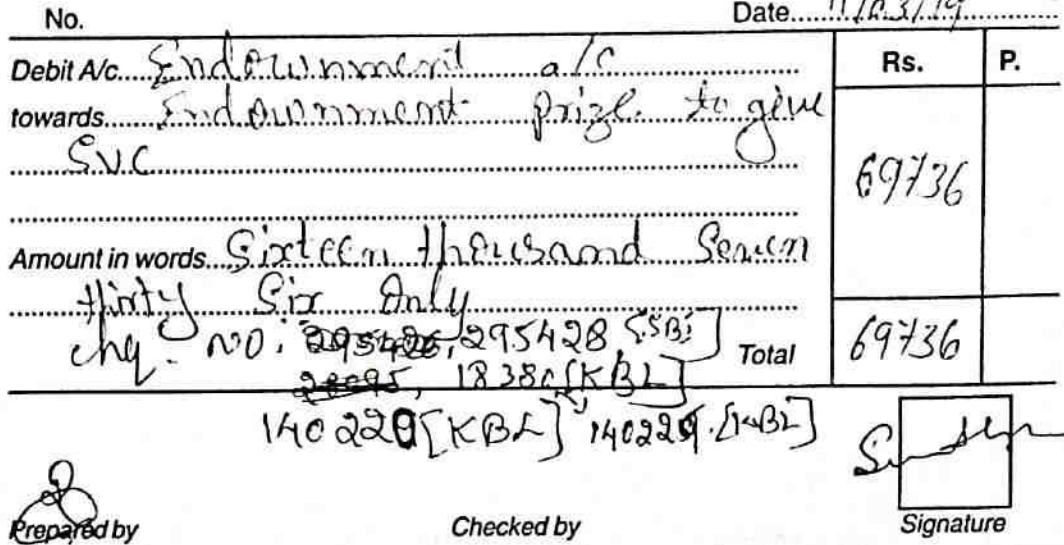 No. Date 11/03/19
Debit A/c. Endownment a/c Rs. P.
towards Endownment prize to give
SVC
69736
Amount in words Sixteen thousand Seven
thirty Six Only
chq. no: 295426, 295428 [SBI] Total 69736
28095, 18380 [KBL]
140220 [KBL] 140229 [KBL]
Prepared by Checked by Signature